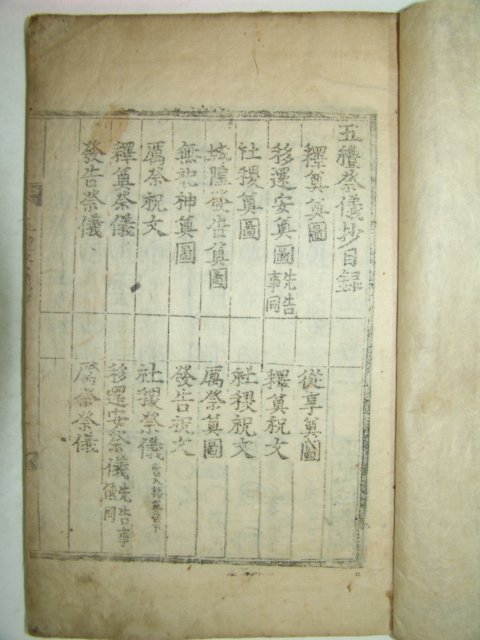 五禮祭儀抄目録
釋奠奠圖
從享奠圖
移還安奠圖 先告事同
釋奠祝文
社稷奠圖
社稷祝文
城隍發告奠圖
厲祭奠圖
無祀神奠圖
發告祝文
厲祭祝文
社稷祭儀
釋奠祭儀
移還安祭儀 先告事儀同
發告祭儀
厲祭祭儀